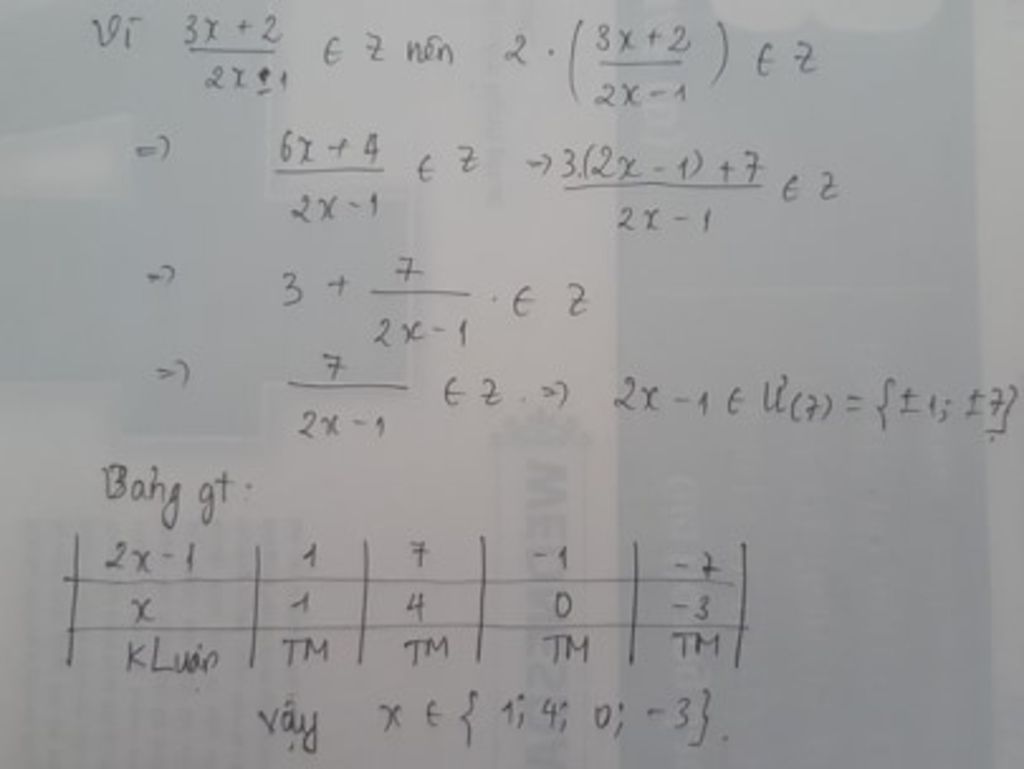 Vì (3x + 2)/(2x - 1) ∈ Z nên 2 . ((3x + 2)/(2x - 1)) ∈ Z
=> (6x + 4)/(2x - 1) ∈ Z => (3.(2x - 1) + 7)/(2x - 1) ∈ Z
=> 3 + 7/(2x - 1) . ∈ Z
=> 7/(2x - 1) ∈ Z . => 2x - 1 ∈ Ư(7) = {±1; ±7}
Bảng gt .
| 2x - 1 | 1 | 7 | -1 | -7 |
| x | 1 | 4 | 0 | -3 |
| KLuận | TM | TM | TM | TM |
vậy x ∈ { 1; 4; 0; -3}.